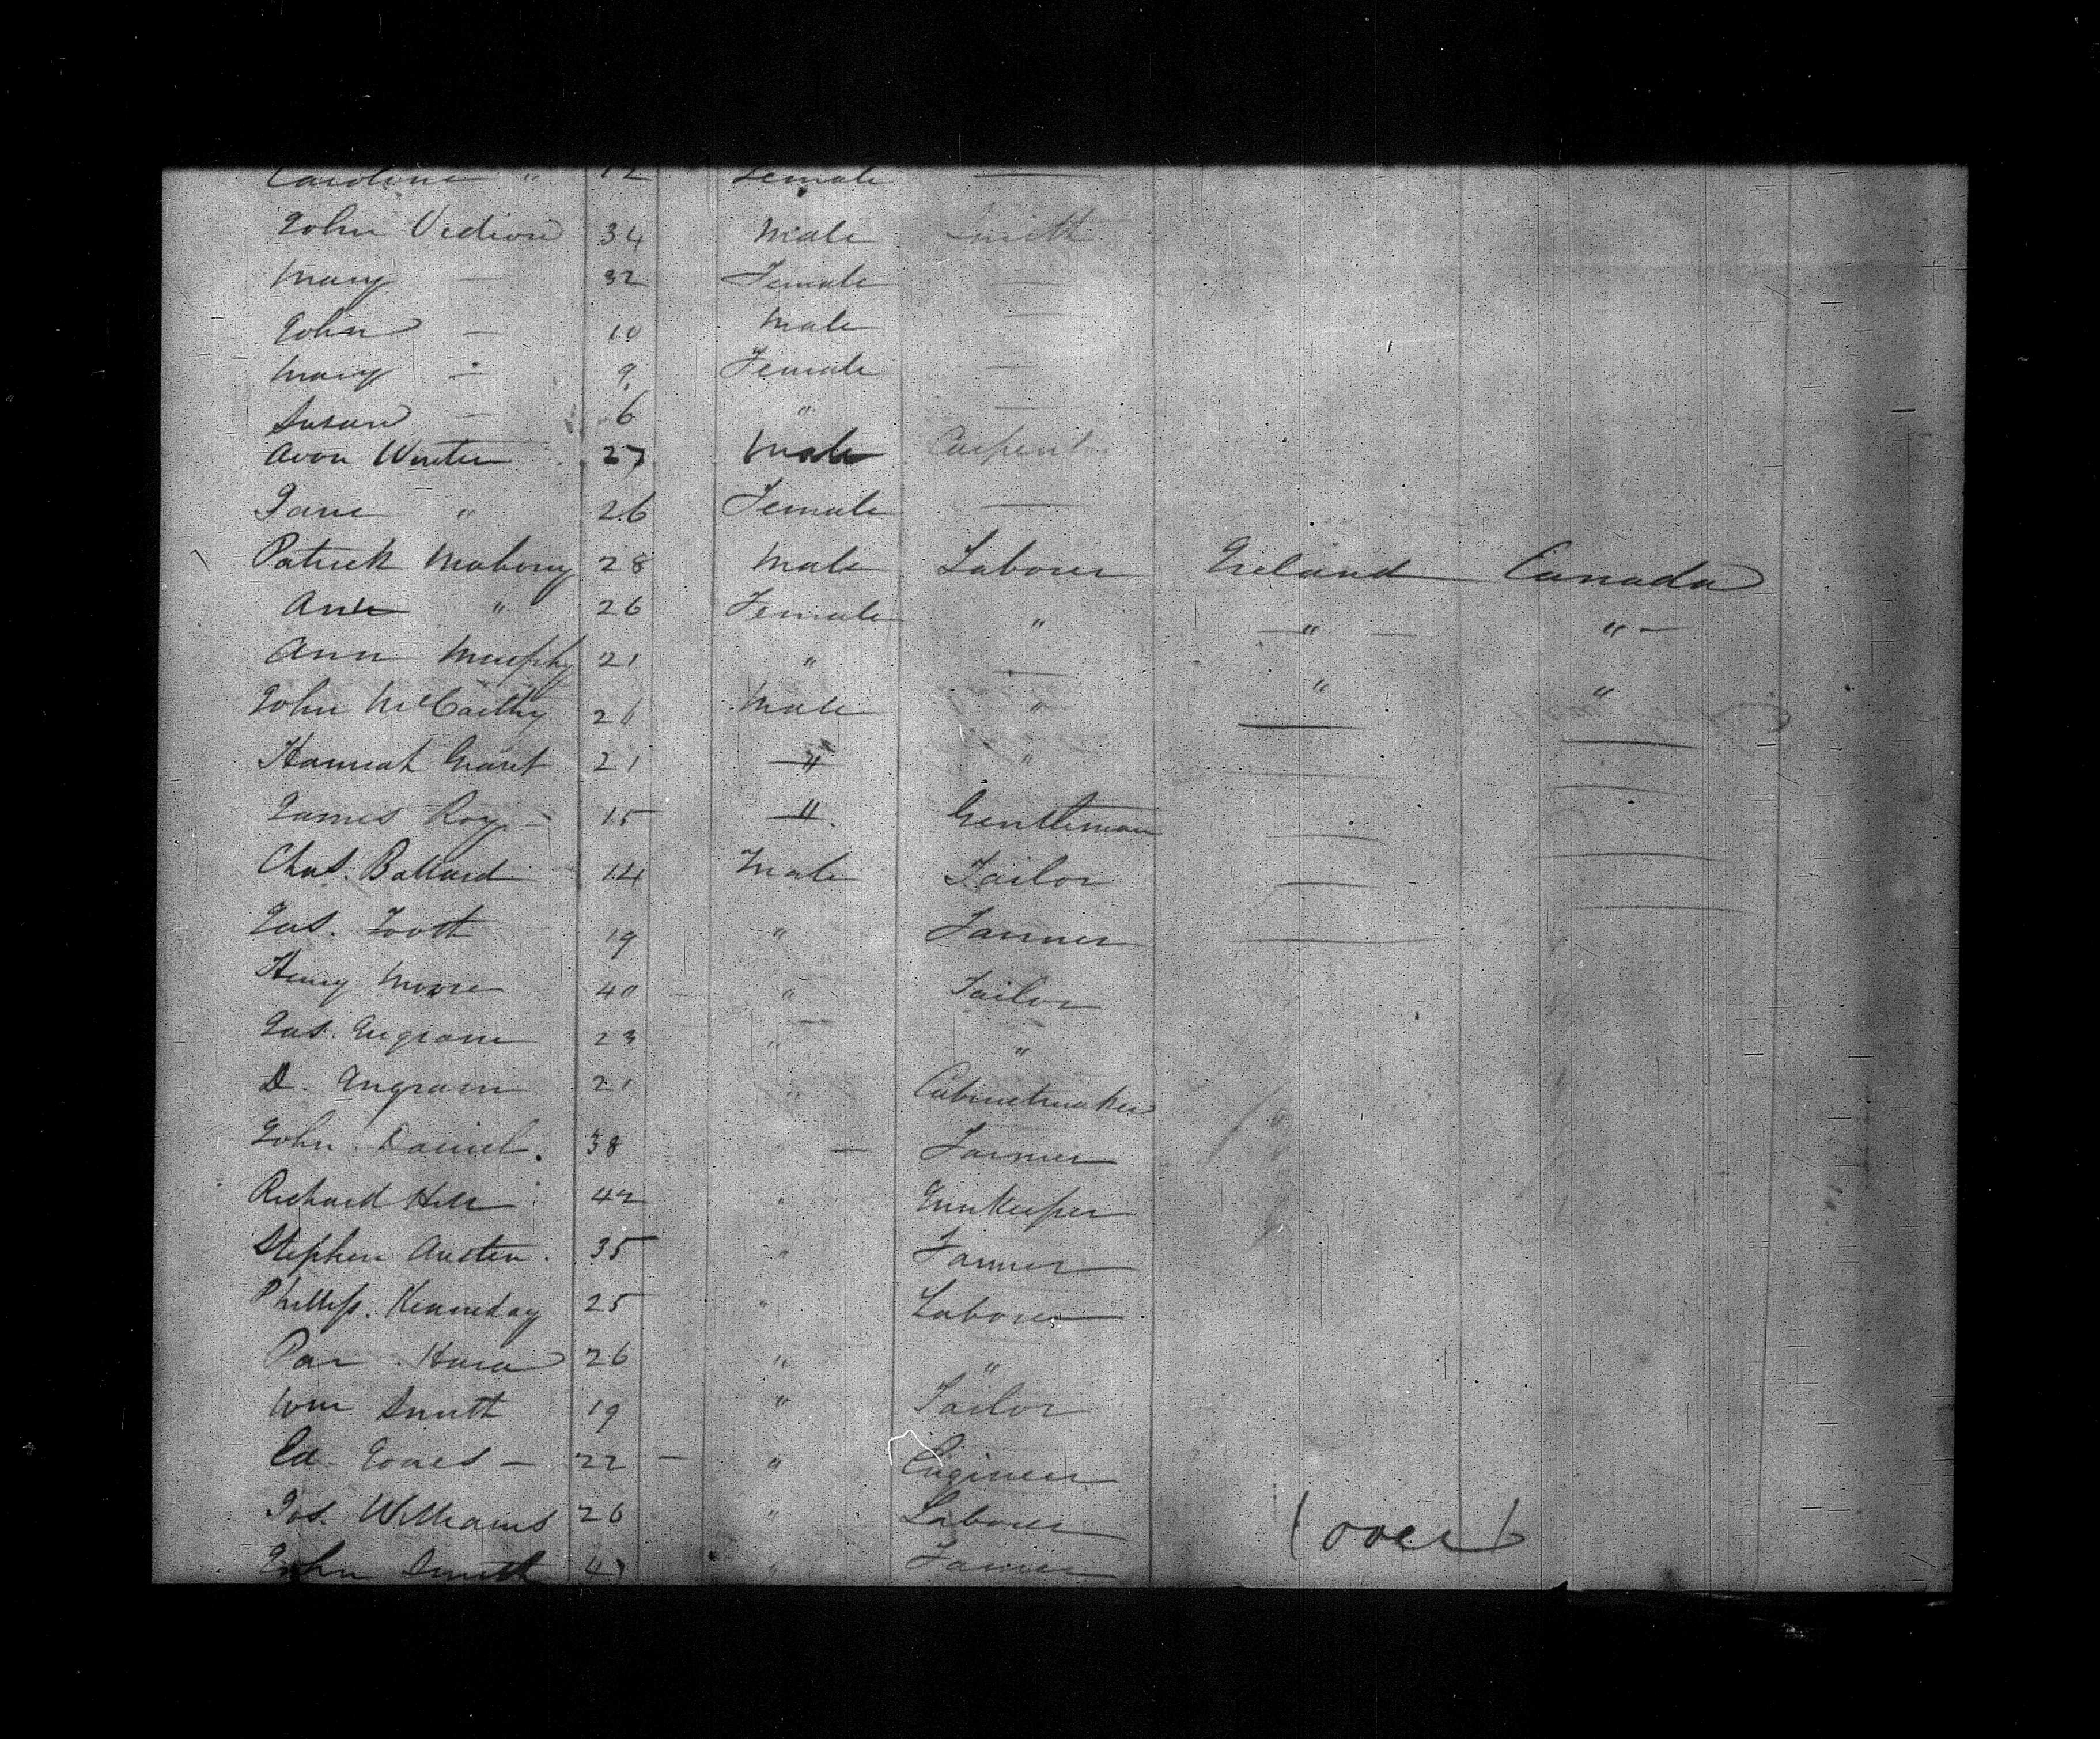 Caroline " 12 Female —
John Vedion 34 Male Smith
Mary — 32 Female —
John — 10 Male —
Mary — 9 Female —
Susan — 6 " —
Avon Winter 27 Male Carpenter
Jane " 26 Female —
Patrick Mahony 28 Male Laborer Ireland Canada
Ann " 26 Female " " "
Ann Murphy 21 " — " "
John McCarthy 26 Male " — —
Hannah Grant 21 " " — —
James Roy — 15 " Gentleman — —
Chas. Ballard 14 Male Tailor — —
Jas. Tooth 19 " Farmer —
Henry Moore 40 " Tailor
Jas. Ingram 23 " "
D. Ingram 21 " Cabinetmaker
John Daniel. 38 " — Farmer
Richard Hill 42 " Innkeeper
Stephen Austen. 35 " Farmer
Phillip. Kenneday 25 " Laborer
26 " "
Wm Smith 19 " Tailor
Ed. Jones — 22 — " Engineer
Jos. Williams 26 " Laborer
John Smith 47 " Farmer
(over)